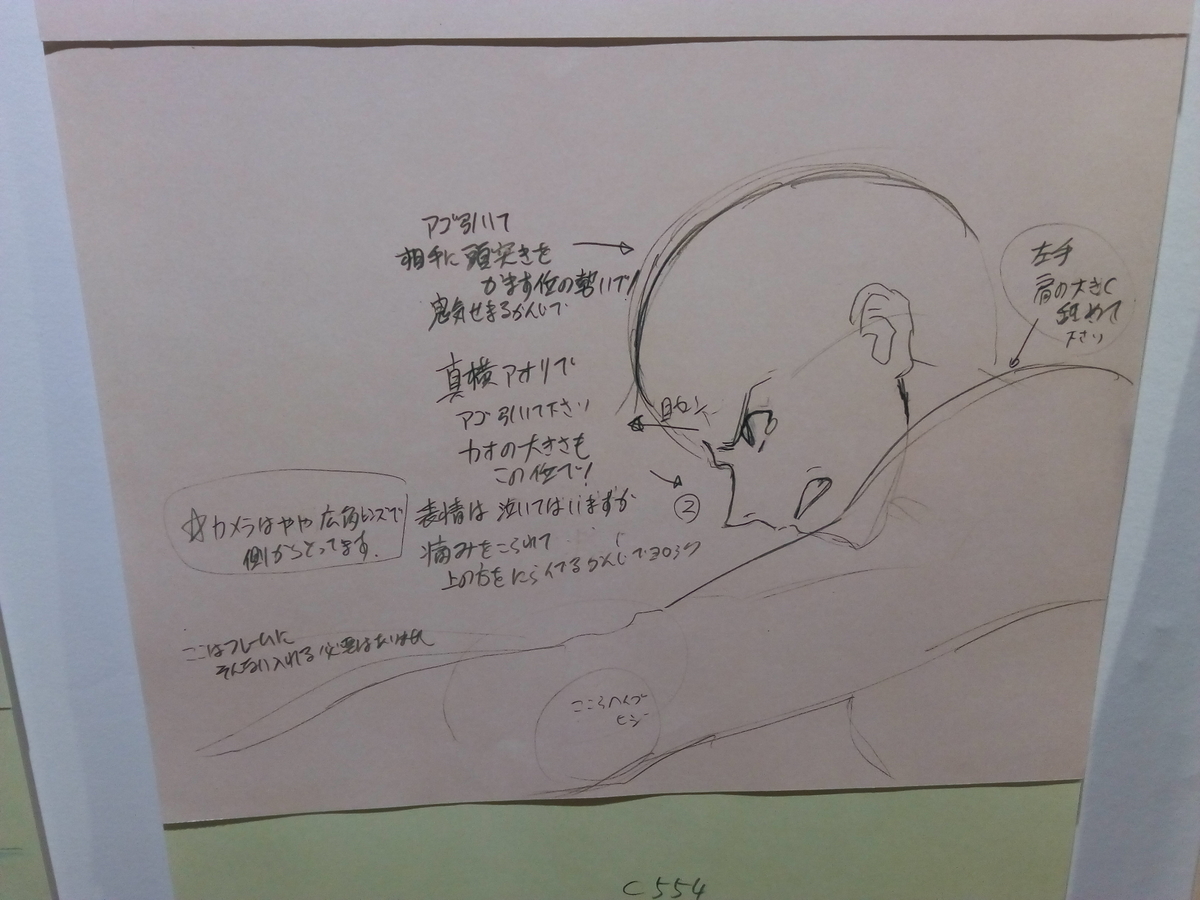 アゴ引いて
相手に頭突きを
かます位の勢いで!
鬼気せまるかんじで
真横アオリで
アゴ引いて下さい
カオの大きさも
この位で!
表情は泣いてはいますが
痛みをこらえて
上の方をにらんでるかんじでヨロシク
☆カメラはやや広角レンズで
側からとってます。
ここはフレームに
そんなに入れる必要はありません
左手
肩の大きく
舐めて
下さい
目セン
②
ヒジ
C554